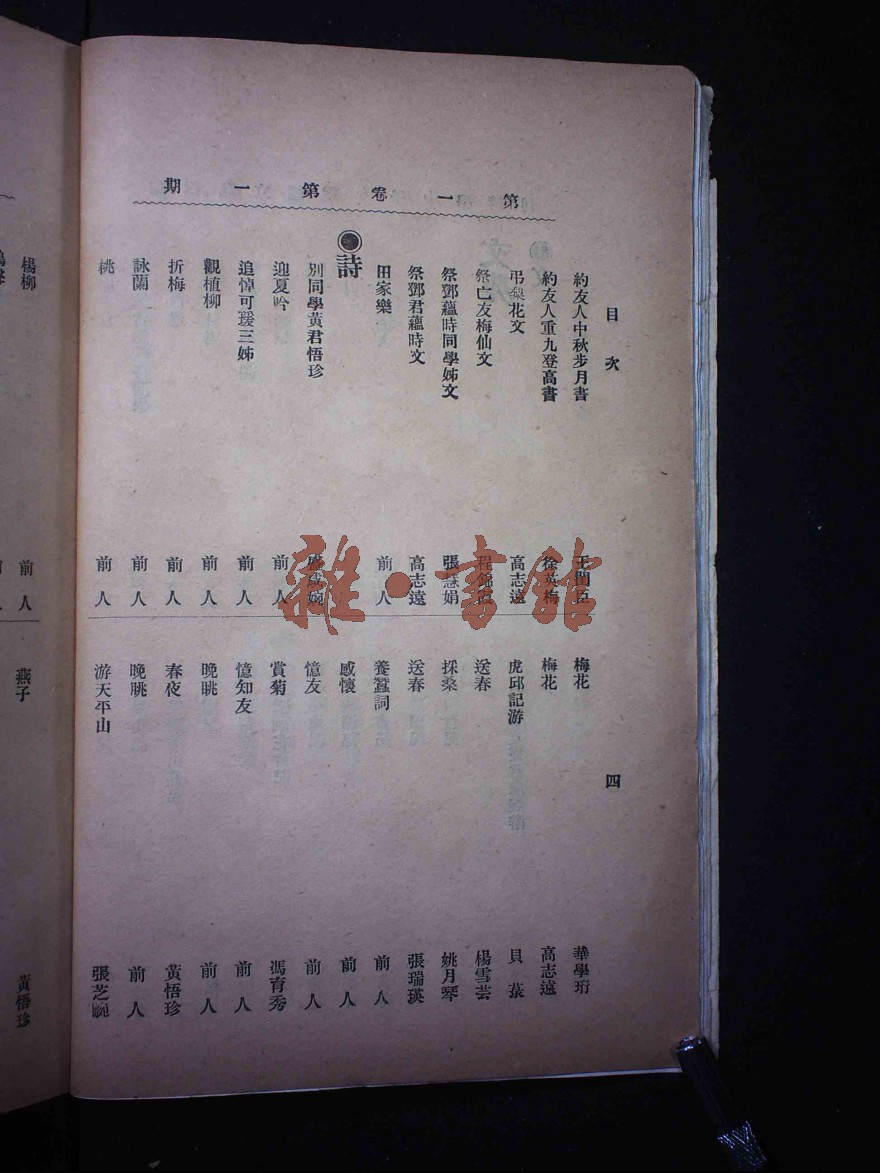 第一卷第一期
目次
四
約友人中秋步月書
約友人重九登高書 徐英梅
弔梨花文 高志遠
祭亡友梅仙文
祭鄧蘊時同學姊文 張慧娟
祭鄧君蘊時文 高志遠
田家樂 前人
◉詩
別同學黃君悟珍
迎夏吟 前人
追悼可瑗三姊 前人
觀植柳 前人
折梅 前人
詠蘭 前人
桃 前人
梅花 華學珩
梅花 高志遠
虎邱記游 貝蓀
送春 楊雪芸
採桑 姚月琴
送春 張瑞瑛
養蠶詞 前人
感懷 前人
憶友 前人
賞菊 馮育秀
憶知友 前人
晚眺 前人
春夜 黃悟珍
晚眺 前人
游天平山 張芝畹
楊柳 前人
燕子 黃悟珍
雜·書館